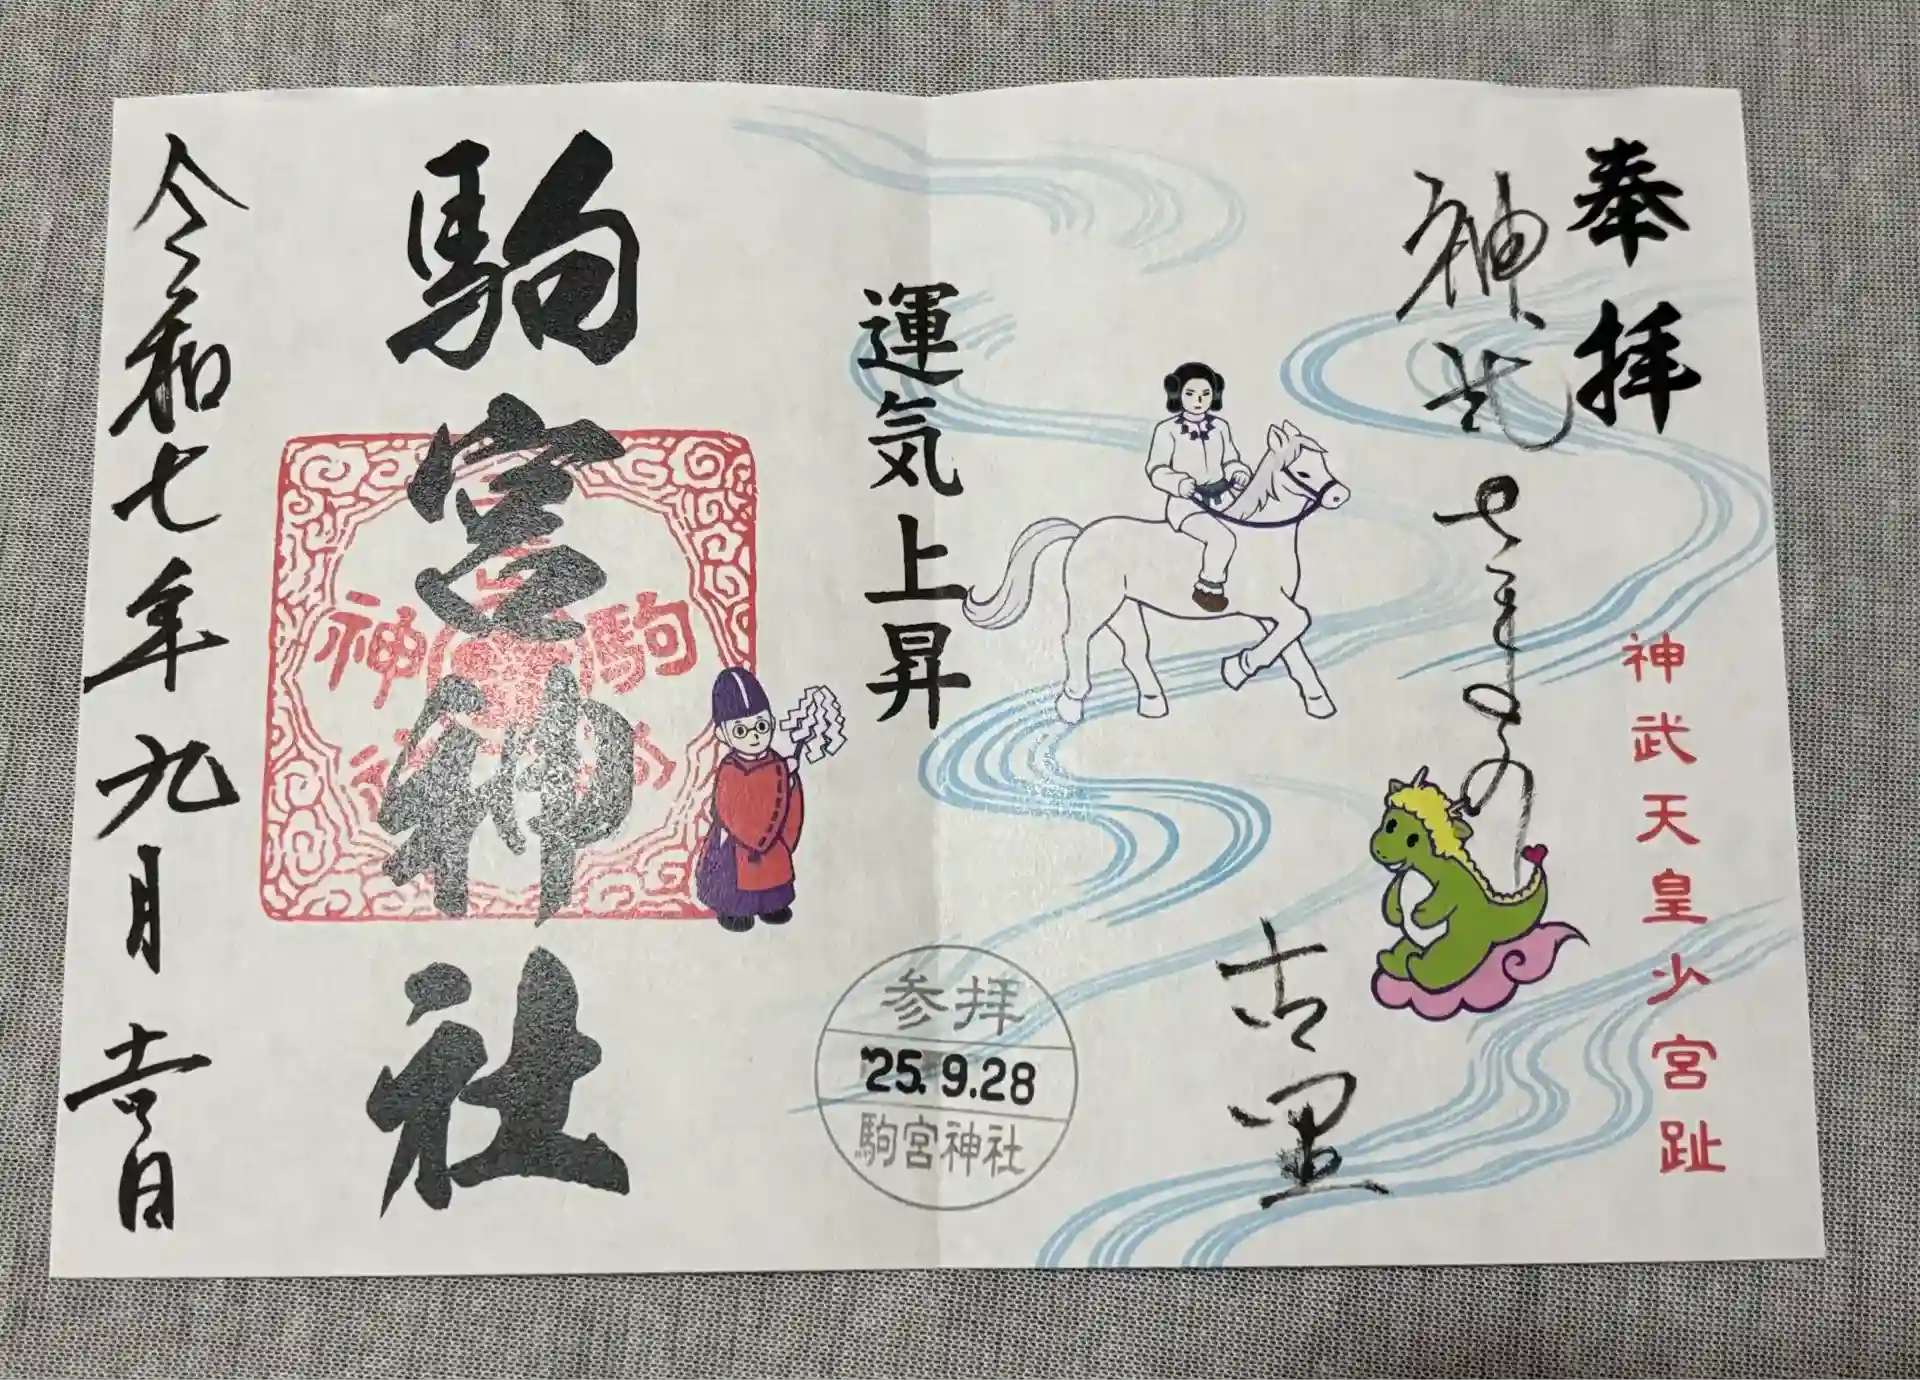 奉拝
神武さまの
古里
神武天皇少宮趾
運気上昇
駒宮神社
駒
神
参拝
'25.9.28
駒宮神社
令和七年九月吉日